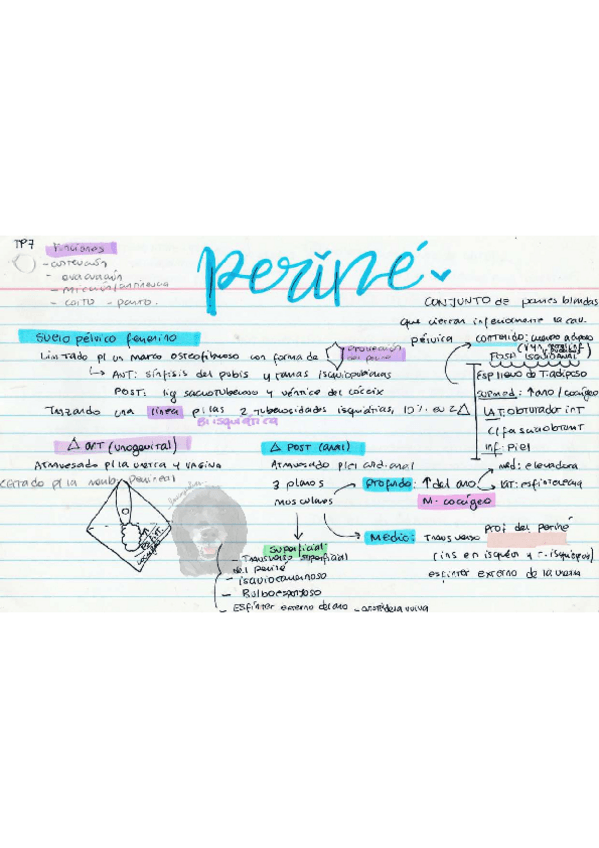 TP7
Funciones
- contención
- evacuación
- micción/continencia
- coito - parto.
periné
CONJUNTO de partes blandas
que cierran inferiormente la cav.
pélvica
contenido: cuerpo adiposo
FOSA isquioanal
Esp lleno de T. adiposo
SUP med: ↑ ano / coxígeo
LAT: obturador int
c/ fascia obturat
inf: Piel
Suelo pélvico femenino
Limitado p/ un marco osteofibroso con forma de
↳ ANT: sínfisis del pubis y ramas isquiopubianas
POST: lig sacrotuberoso y vértice del cóccix
Trazando una línea p/ las 2 tuberosidades isquiáticas, ÷ en 2 △
Biisquiática
△ ANT (urogenital)
Atravesado p/ la uretra y vagina
cerrado p/ la memb perineal
△ POST (anal)
Atravesado p/ el cond. anal
3 planos
musculares
Profundo: ↑ del ano
med: elevadora
lat: esfinteriana
M. coccígeo
Medio: Transverso Prof del periné
(ins en isquión y r. isquiopub)
esfínter externo de la uretra
Superficial:
- Transverso superficial
del periné
- isquiocavernoso
- Bulboesponjoso
- Esfínter externo del ano - constrictor vulva